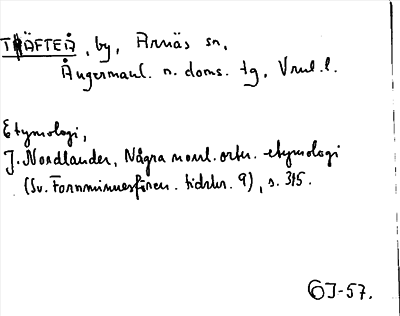 TRÄFTEÅ, by, Arnäs sn,
Ångermanl. n. doms. tg, Vnrl. l.
Etymologi,
J. Nordlander, Några norrl. ortn. etymologi
(Sv. Fornminnesfören. tidskr. 9), s. 315.
GJ-57.